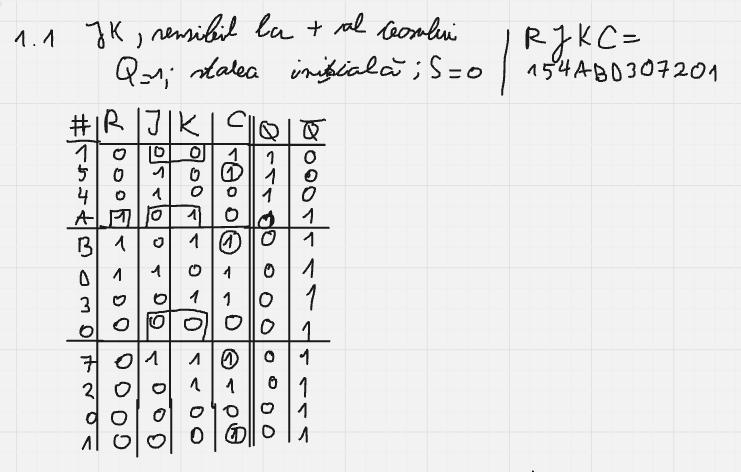 1.1 JK, sensibil la + al ceasului
Q=1; starea inițială; S=0
RJKC=
154ABD307201
# R J K C Q Q̅
1 0 0 0 1 1 0
5 0 1 0 1 1 0
4 0 1 0 0 1 0
A 1 0 1 0 0 1
B 1 0 1 1 0 1
D 1 1 0 1 0 1
3 0 0 1 1 0 1
0 0 0 0 0 0 1
7 0 1 1 1 0 1
2 0 0 1 1 0 1
0 0 0 0 0 0 1
1 0 0 0 1 0 1